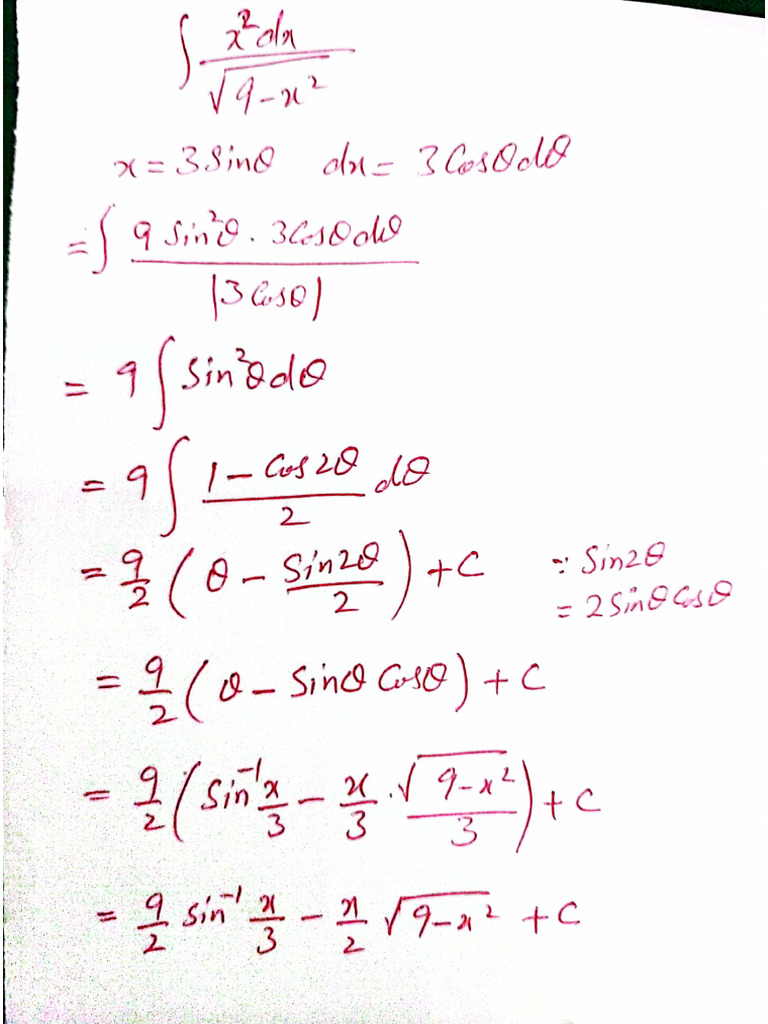 ∫ x² dx / √(9-x²)
x = 3 Sinθ dx = 3 Cosθ dθ
= ∫ 9 Sin²θ . 3 Cosθ dθ / |3 Cosθ|
= 9 ∫ Sin²θ dθ
= 9 ∫ (1 - Cos 2θ)/2 dθ
= 9/2 (θ - Sin2θ/2) + C ∵ Sin2θ
= 2 Sinθ Cosθ
= 9/2 (θ - Sinθ Cosθ) + C
= 9/2 (Sin⁻¹ x/3 - x/3 . √(9-x²)/3) + C
= 9/2 sin⁻¹ x/3 - x/2 √(9-x²) + C